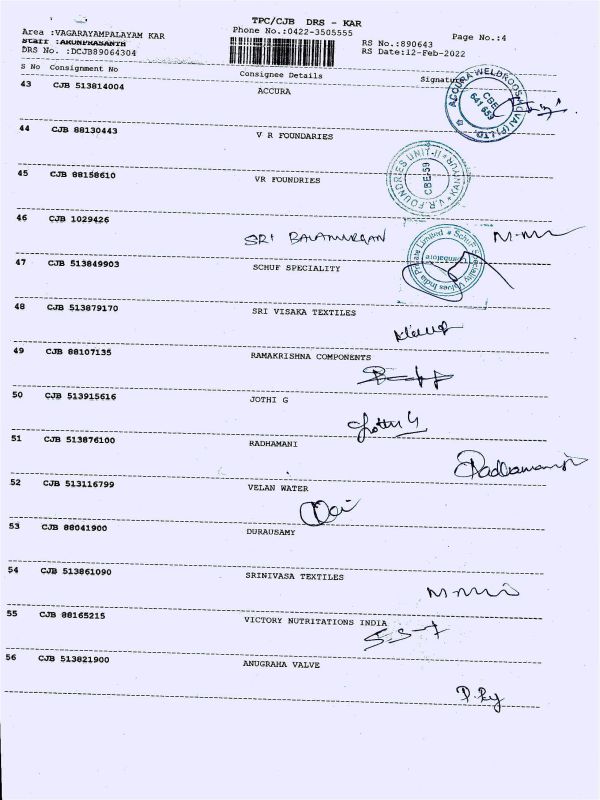 TPC/CJB DRS - KAR
Area :VAGARAYAMPALAYAM KAR
Phone No.:0422-3505555
Page No.:4
Staff :ARUNPRASANTH
RS No.:890643
DRS No. :DCJB89064304
RS Date:12-Feb-2022
S No Consignment No Consignee Details Signature
43 CJB 513814004 ACCURA
ACCURA WELDROOS KOVAI (P) LTD.
CBE
641 659
44 CJB 88130443 V R FOUNDARIES
45 CJB 88158610 VR FOUNDRIES
V.R. FOUNDRIES UNIT-II KANIYUR
CBE-59
46 CJB 1029426 SRI BALAMURGAN
47 CJB 513849903 SCHUF SPECIALITY
SchuF Speciality Valves India Private Limited
Coimbatore
48 CJB 513879170 SRI VISAKA TEXTILES
49 CJB 88107135 RAMAKRISHNA COMPONENTS
50 CJB 513915616 JOTHI G
Jothi G
51 CJB 513876100 RADHAMANI
Radhamani
52 CJB 513116799 VELAN WATER
53 CJB 88041900 DURAUSAMY
54 CJB 513861090 SRINIVASA TEXTILES
55 CJB 88165215 VICTORY NUTRITATIONS INDIA
56 CJB 513821900 ANUGRAHA VALVE